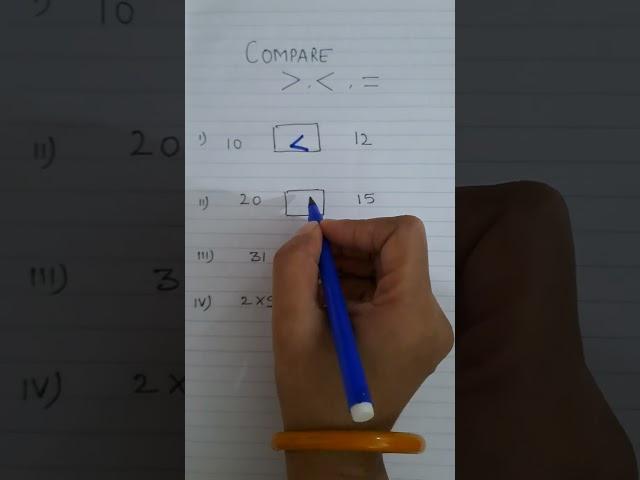 COMPARE
> , < , =
i) 10 < 12
ii) 20 15
iii) 31
iv) 2×5